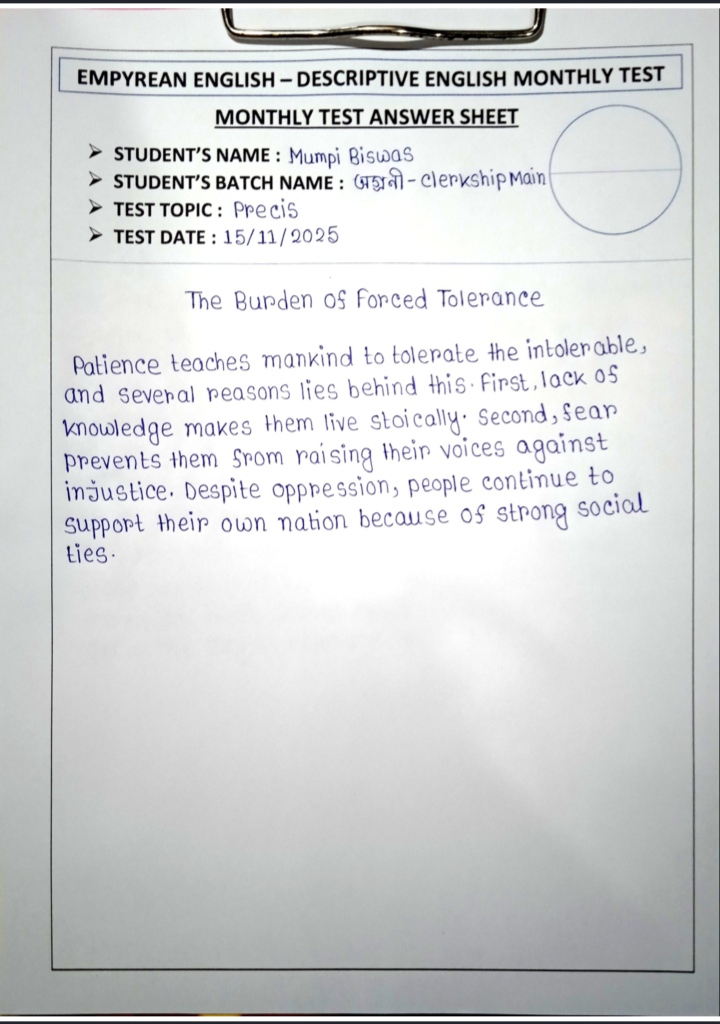 EMPYREAN ENGLISH – DESCRIPTIVE ENGLISH MONTHLY TEST
MONTHLY TEST ANSWER SHEET
➤ STUDENT'S NAME : Mumpi Biswas
➤ STUDENT'S BATCH NAME : অগ্রনী - Clerkship Main
➤ TEST TOPIC : Precis
➤ TEST DATE : 15/11/2025
The Burden of Forced Tolerance
Patience teaches mankind to tolerate the intolerable,
and several reasons lies behind this. First, lack of
knowledge makes them live stoically. Second, fear
prevents them from raising their voices against
injustice. Despite oppression, people continue to
support their own nation because of strong social
ties.